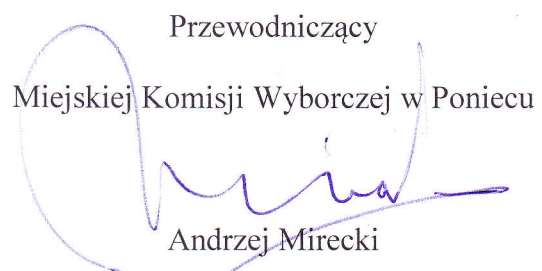 Przewodniczący
Miejskiej Komisji Wyborczej w Poniecu
Andrzej Mirecki